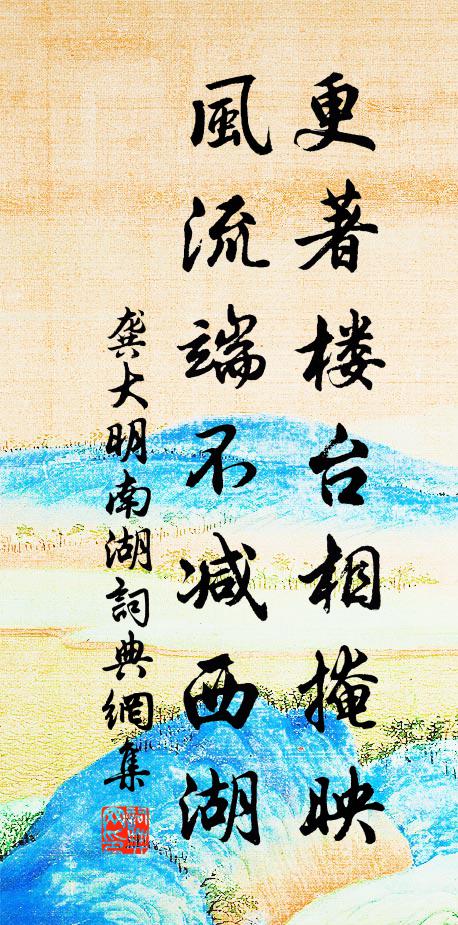 更著楼台相掩映
風流端不減西湖
龚大明南湖詞典網集